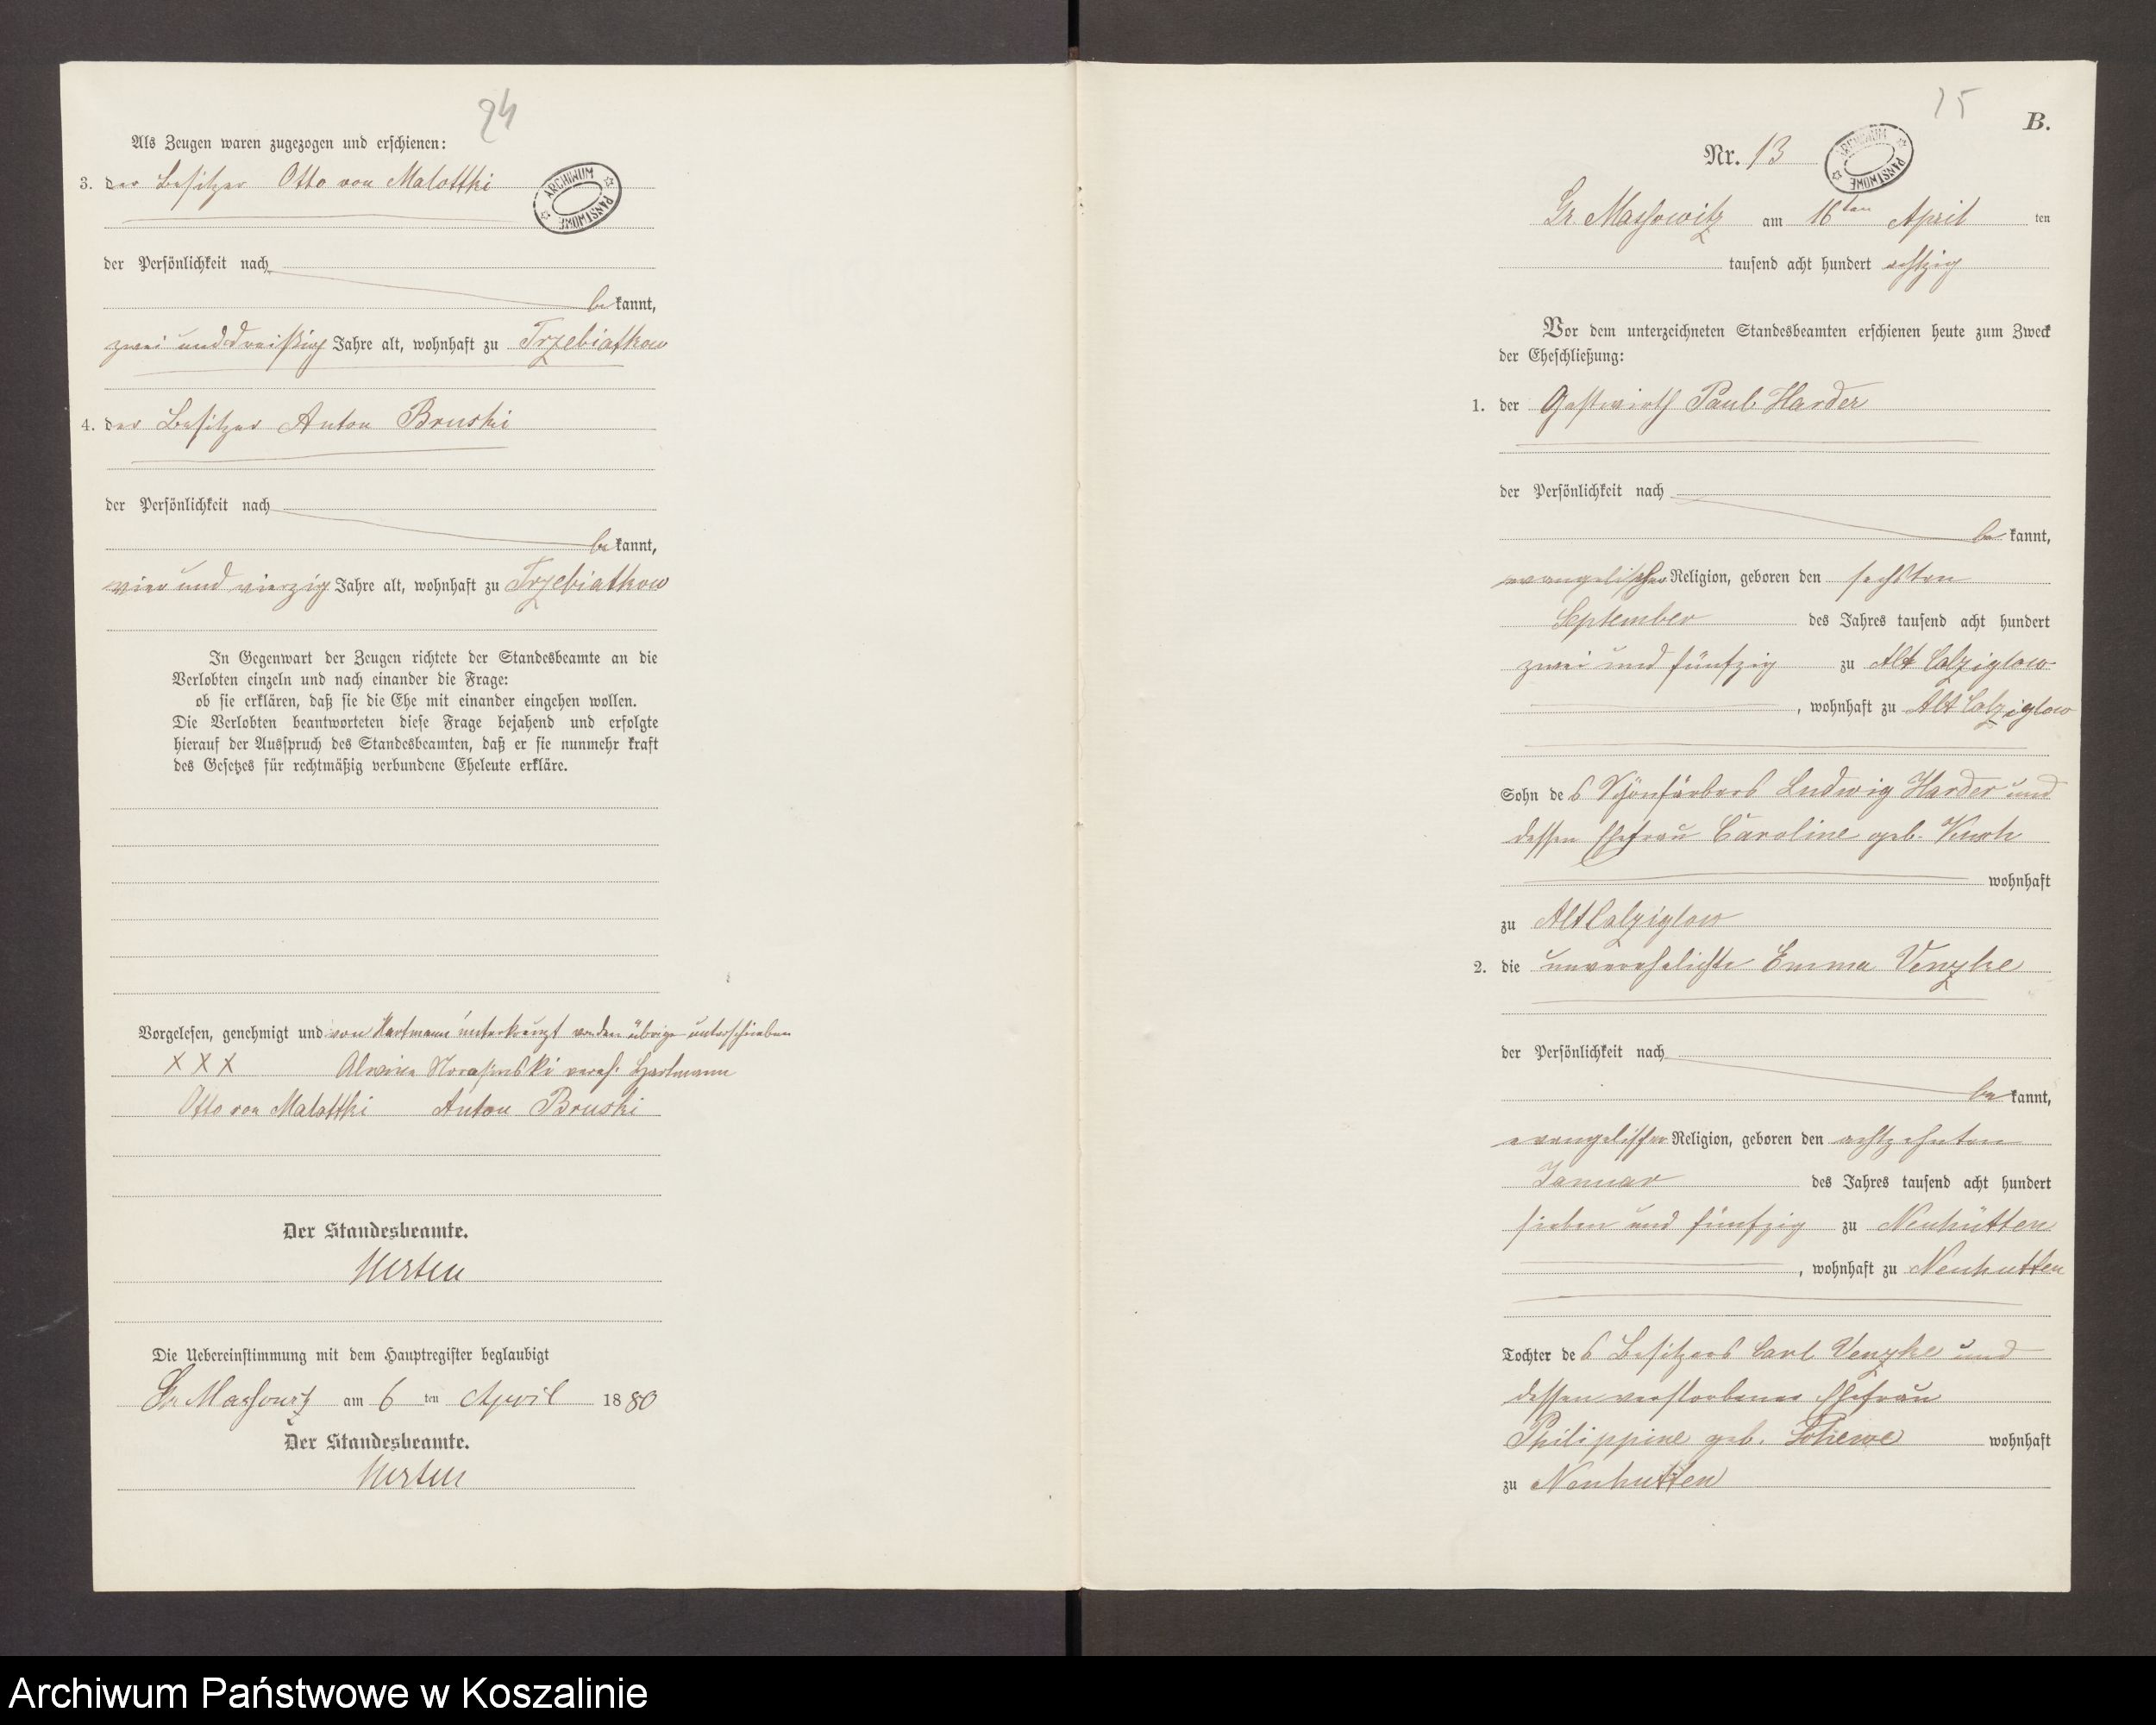 24
Als Zeugen waren zugezogen und erschienen:
3. der Besitzer Otto von Malottki
ARCHIWUM PAŃSTWOWE
der Persönlichkeit nach
bekannt,
zwei und dreißig Jahre alt, wohnhaft zu Trzebiatkow
4. der Besitzer Anton Bruski
der Persönlichkeit nach
bekannt,
vier und vierzig Jahre alt, wohnhaft zu Trzebiatkow
In Gegenwart der Zeugen richtete der Standesbeamte an die
Verlobten einzeln und nach einander die Frage:
ob sie erklären, daß sie die Ehe mit einander eingehen wollen.
Die Verlobten beantworteten diese Frage bejahend und erfolgte
hierauf der Ausspruch des Standesbeamten, daß er sie nunmehr kraft
des Gesetzes für rechtmäßig verbundene Eheleute erkläre.
Vorgelesen, genehmigt und von Hartmann unterkreuzt von den übrigen unterschrieben
XXX Alwine vereh. Hartmann
Otto von Malottki Anton Bruski
Der Standesbeamte.
Merten
Die Uebereinstimmung mit dem Hauptregister beglaubigt
Gr Massowitz am 6 ten April 1880
Der Standesbeamte.
Merten
25
B.
Nr. 13
ARCHIWUM PAŃSTWOWE
Gr. Massowitz am 16ten April ten
tausend acht hundert achtzig
Vor dem unterzeichneten Standesbeamten erschienen heute zum Zweck
der Eheschließung:
1. der Gastwirth Paul Harder
der Persönlichkeit nach
bekannt,
evangelischer Religion, geboren den sechsten
September des Jahres tausend acht hundert
zwei und fünfzig zu Alt Colziglow
, wohnhaft zu Alt Colziglow
Sohn des Schönfärbers Ludwig Harder und
dessen Ehefrau Caroline geb.
wohnhaft
zu Alt Colziglow
2. die unverehelichte Emma Venzke
der Persönlichkeit nach
bekannt,
evangelischer Religion, geboren den achtzehnten
Januar des Jahres tausend acht hundert
sieben und fünfzig zu Neuhütten
, wohnhaft zu Neuhutten
Tochter des Besitzers Carl Venzke und
dessen verstorbener Ehefrau
Philippine geb. wohnhaft
zu Neuhutten
Archiwum Państwowe w Koszalinie